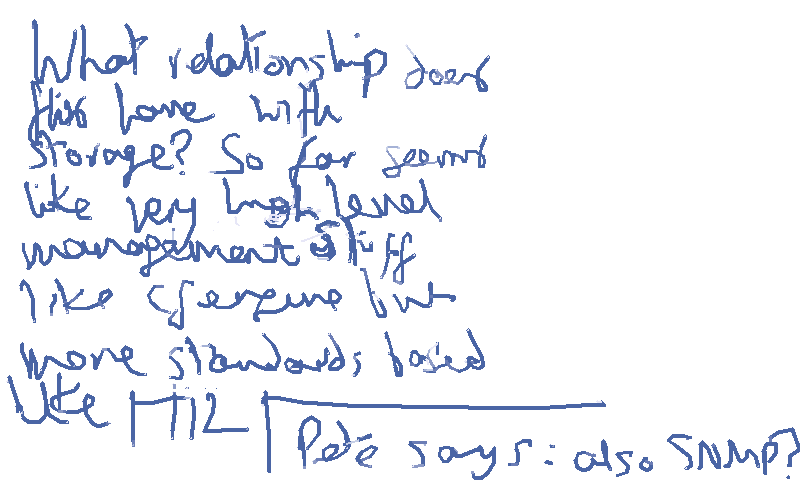 What relationship does
this have with
storage? So far seems
like very high level
management stuff
like cfengine but
more standards based
like ITIL
Pete says: also SNMP?